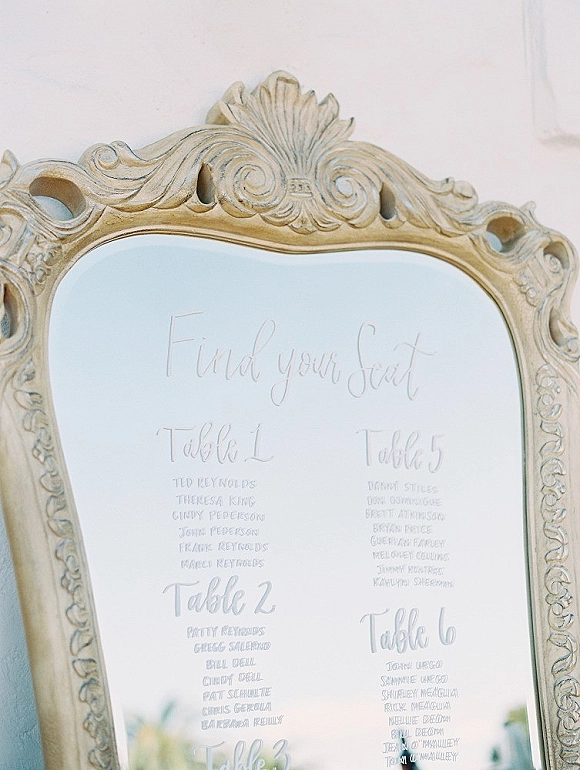 Find your Seat
Table 1
TED REYNOLDS
THERESA KING
CINDY PEDERSON
JOHN PEDERSON
FRANK REYNOLDS
MARCI REYNOLDS
Table 2
PATTY REYNOLDS
GREGG SALERNO
BILL DELL
CINDY DELL
PAT SCHULTE
CHRIS GEROLA
BARBARA REILLY
Table 3
Table 5
DANNY STILES
BRETT ATKINSON
BRYAN PRICE
FARLEY
MELONEY COLLINS
JIMMY
KAHLYN SHERMAN
Table 6
JOHN URGO
SAMMYE URGO
SHIRLEY MEAGLIA
RICK MEAGLIA
NELLIE DEQNN
BILL DEQNN
JEAN O'MALLEY
TOM O'MALLEY